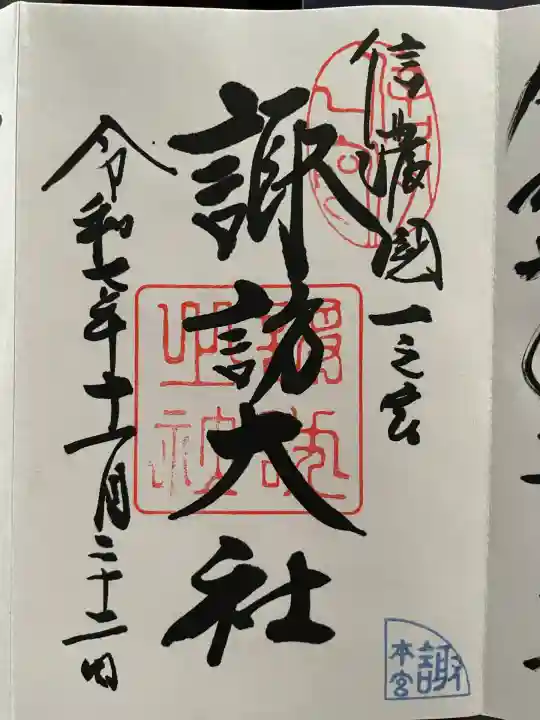 信濃国一之宮
諏訪大社
令和七年十一月二十二日
諏
本宮